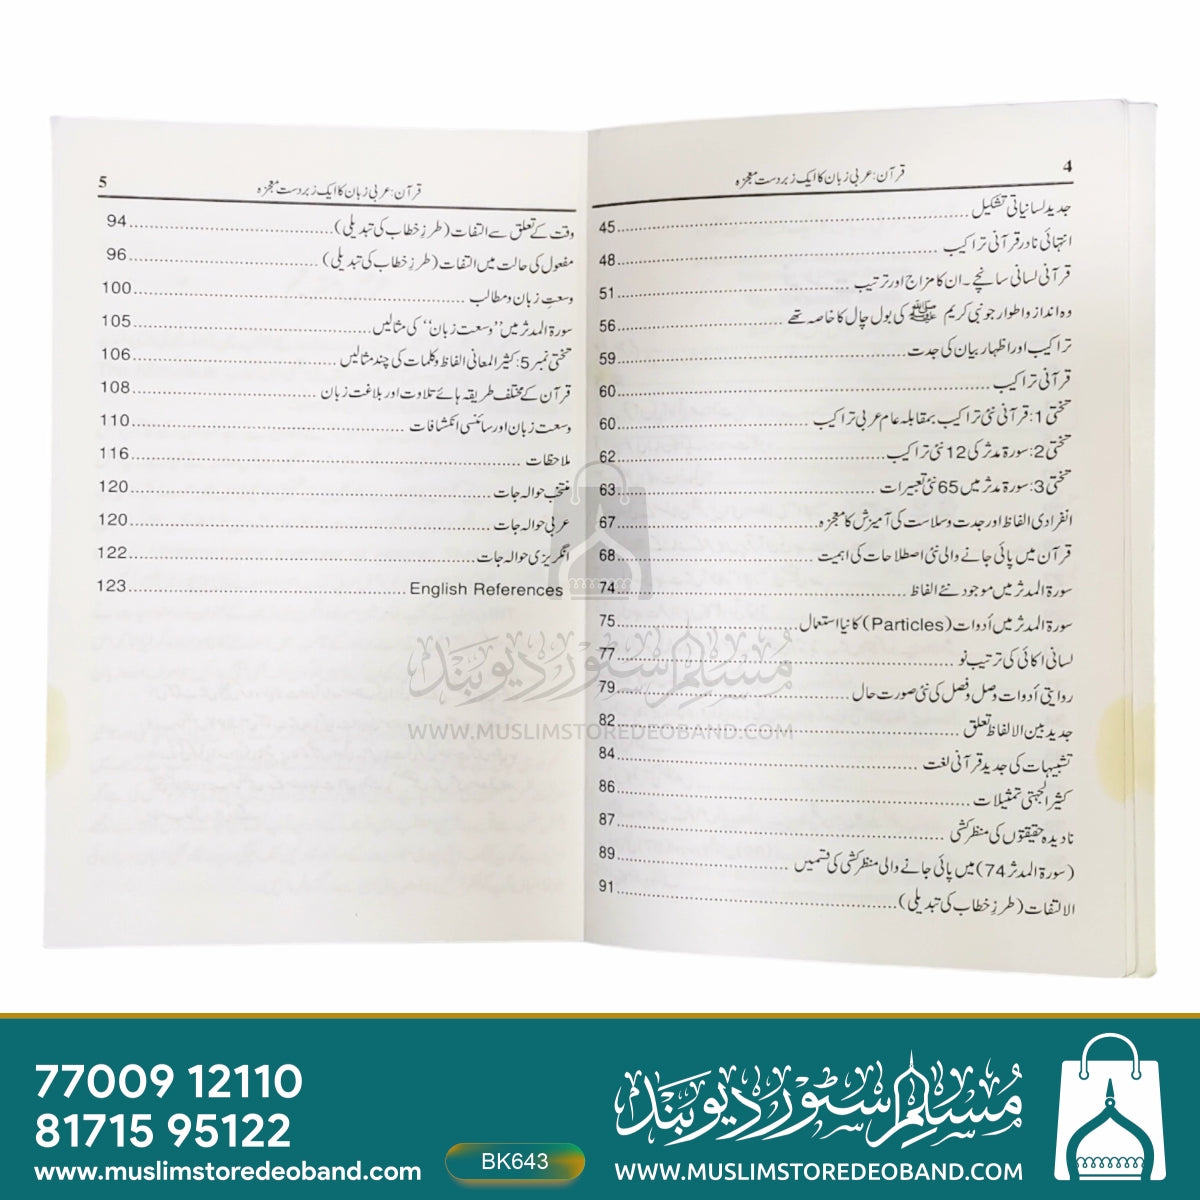 4
قرآن: عربی زبان کا ایک زبردست معجزہ
جدید لسانیاتی تشکیل ........ 45
انتہائی نادر قرآنی تراکیب ........ 48
قرآنی لسانی سانچے۔ ان کا مزاج اور ترتیب ........ 51
وہ انداز و اطوار جو نبی کریم ﷺ کی بول چال کا خاصہ تھے ........ 56
تراکیب اور اظہار بیان کی جدت ........ 59
قرآنی تراکیب ........ 60
تختی 1: قرآنی نئی تراکیب بمقابلہ عام عربی تراکیب ........ 60
تختی 2: سورۃ مدثر کی 12 نئی تراکیب ........ 62
تختی 3: سورۃ مدثر میں 65 نئی تعبیرات ........ 63
انفرادی الفاظ اور جدت و سلاست کی آمیزش کا معجزہ ........ 67
قرآن میں پائی جانے والی نئی اصطلاحات کی اہمیت ........ 68
سورۃ المدثر میں موجود نئے الفاظ ........ 74
سورۃ المدثر میں أدوات (Particles) کا نیا استعمال ........ 75
لسانی اکائی کی ترتیب نو ........ 77
روایتی أدوات وصل و فصل کی نئی صورت حال ........ 79
جدید بین الالفاظ تعلق ........ 82
تشبیہات کی جدید قرآنی لغت ........ 84
کثیر الجہتی تمثیلات ........ 86
نادیدہ حقیقتوں کی منظر کشی ........ 87
(سورۃ المدثر 74) میں پائی جانے والی منظر کشی کی قسمیں ........ 89
الالتفات (طرزِ خطاب کی تبدیلی) ........ 91
5
قرآن: عربی زبان کا ایک زبردست معجزہ
وقت کے تعلق سے التفات (طرزِ خطاب کی تبدیلی) ........ 94
مفعول کی حالت میں التفات (طرزِ خطاب کی تبدیلی) ........ 96
وسعتِ زبان و مطالب ........ 100
سورۃ المدثر میں "وسعت زبان" کی مثالیں ........ 105
تختی نمبر 5: کثیر المعانی الفاظ و کلمات کی چند مثالیں ........ 106
قرآن کے مختلف طریقہ ہائے تلاوت اور بلاغت زبان ........ 108
وسعت زبان اور سائنسی انکشافات ........ 110
ملاحظات ........ 116
منتخب حوالہ جات ........ 120
عربی حوالہ جات ........ 120
انگریزی حوالہ جات ........ 122
English References ........ 123
مسلم سٹور دیوبند
WWW.MUSLIMSTOREDEOBAND.COM
77009 12110
81715 95122
www.muslimstoredeoband.com
BK643
مسلم سٹور دیوبند
WWW.MUSLIMSTOREDEOBAND.COM